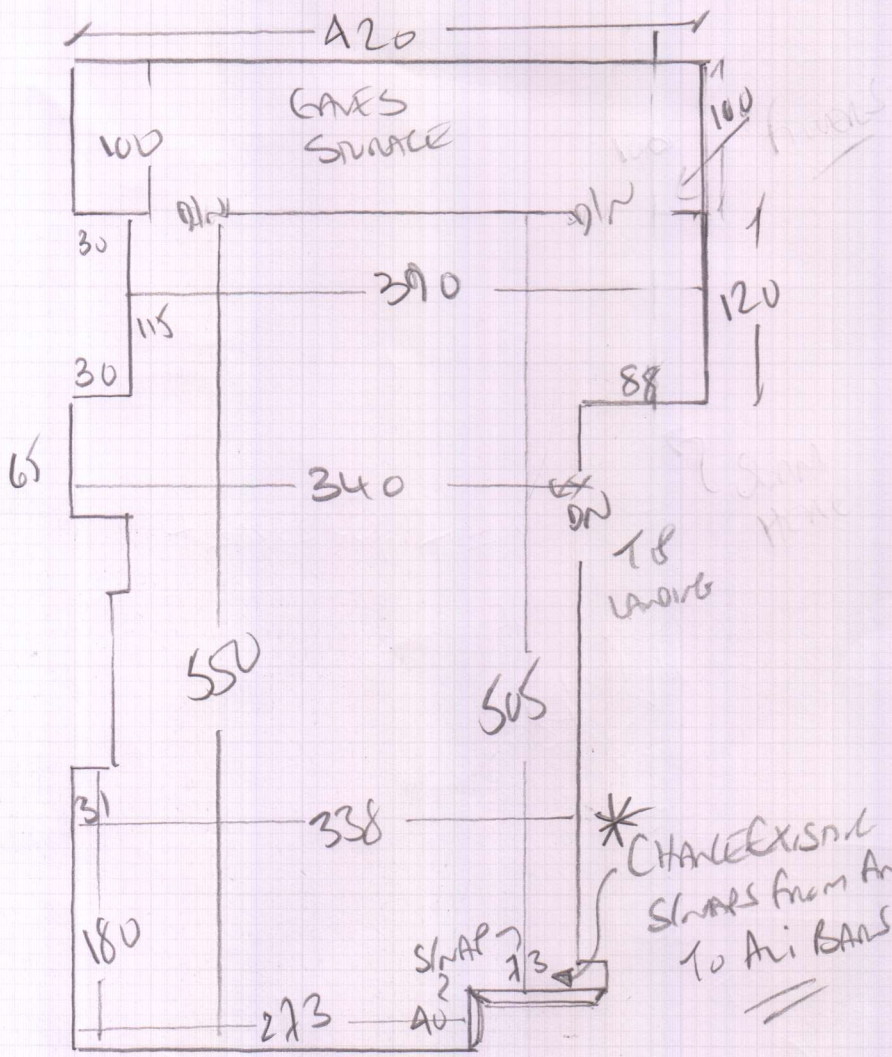 420
EAVES
STORAGE
100
100
D/W
D/W
30
390
120
115
30
88
65
340
DN
T8
LANDING
550
505
31
338
*
CHANGE EXISTING
S/NAPS FROM
TO ALI BARS
180
S/NAP
2
73
273
40